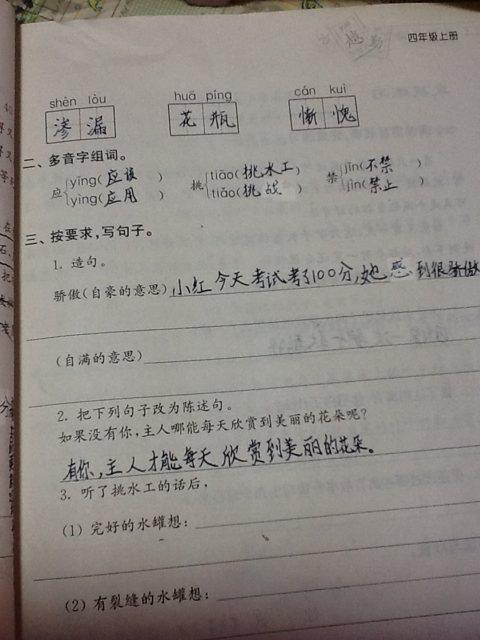 四年级上册
shèn lòu huā píng cán kuì
渗漏 花瓶 惭愧
二、多音字组词。
应 yīng(应该) 挑 tiāo(挑水工) 禁 jīn(不禁)
yìng(应用) tiǎo(挑战) jìn(禁止)
三、按要求,写句子。
1. 造句。
骄傲(自豪的意思)小红今天考试考了100分,她感到很骄傲
(自满的意思)
2. 把下列句子改为陈述句。
如果没有你,主人哪能每天欣赏到美丽的花朵呢?
有你,主人才能每天欣赏到美丽的花朵。
3. 听了挑水工的话后,
(1) 完好的水罐想:
(2) 有裂缝的水罐想: